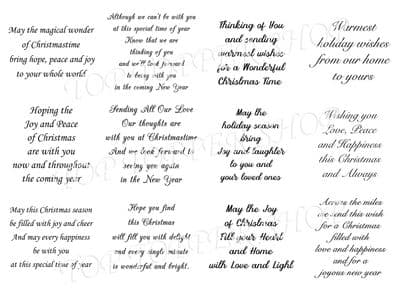 May the magical wonder
of Christmastime
bring hope, peace and joy
to your whole world!
Although we can't be with you
at this special time of year
Know that we are
thinking of you
and we'll look forward
to being with you
in the coming New Year
Thinking of You
and sending
warmest wishes
for a Wonderful
Christmas Time
Warmest
holiday wishes
from our home
to yours
Hoping the
Joy and Peace
of Christmas
are with you
now and throughout
the coming year
Sending All Our Love
Our thoughts are
with you at Christmastime
And we look forward to
seeing you again
in the New Year
May the
holiday season
bring
Joy and laughter
to you and
your loved ones
Wishing you
Love, Peace
and Happiness
this Christmas
and Always
May this Christmas season
be filled with joy and cheer
And may every happiness
be with you
at this special time of year
Hope you find
this Christmas
will fill you with delight
and every single minute
is wonderful and bright.
May the Joy
of Christmas
Fill your Heart
and Home
with Love and Light
Across the miles
we send this wish
for a Christmas
filled with
love and happiness
and for a
joyous new year